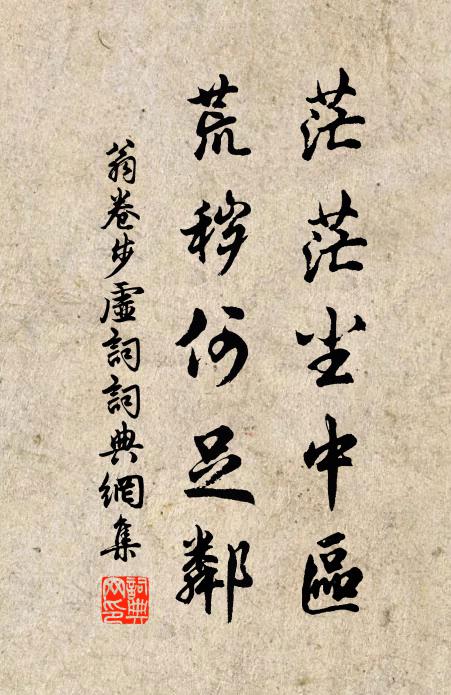 茫茫坐中區
荒穢何足鄰
翁卷步虛詞詞典網集
詞典網印